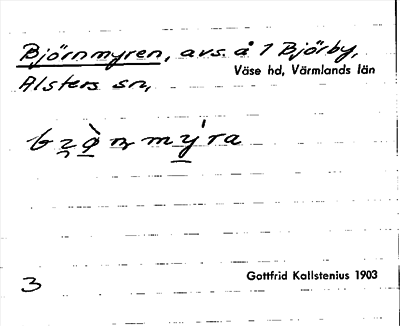 Björnmyren, avs. å 1 Björby,
Väse hd, Värmlands län
Alsters sn,
3
Gottfrid Kallstenius 1903